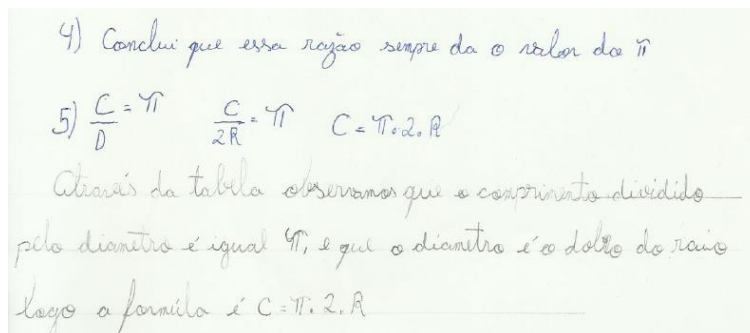 4) Conclui que essa razão sempre da o valor do π
5) C/D = π C/2R = π C = π.2.R
Através da tabela observamos que o comprimento dividido
pelo diametro é igual π, e que o diametro é o dobro do raio
logo a formúla é C = π. 2. R